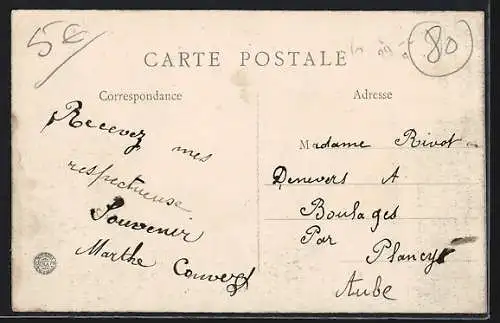 5€
80
CARTE POSTALE
Correspondance
Recevez mes
respectueuse
Souvenir
Marthe
Adresse
Madame Rivot
Denevers A
Boulages
Par Plancy
Aube